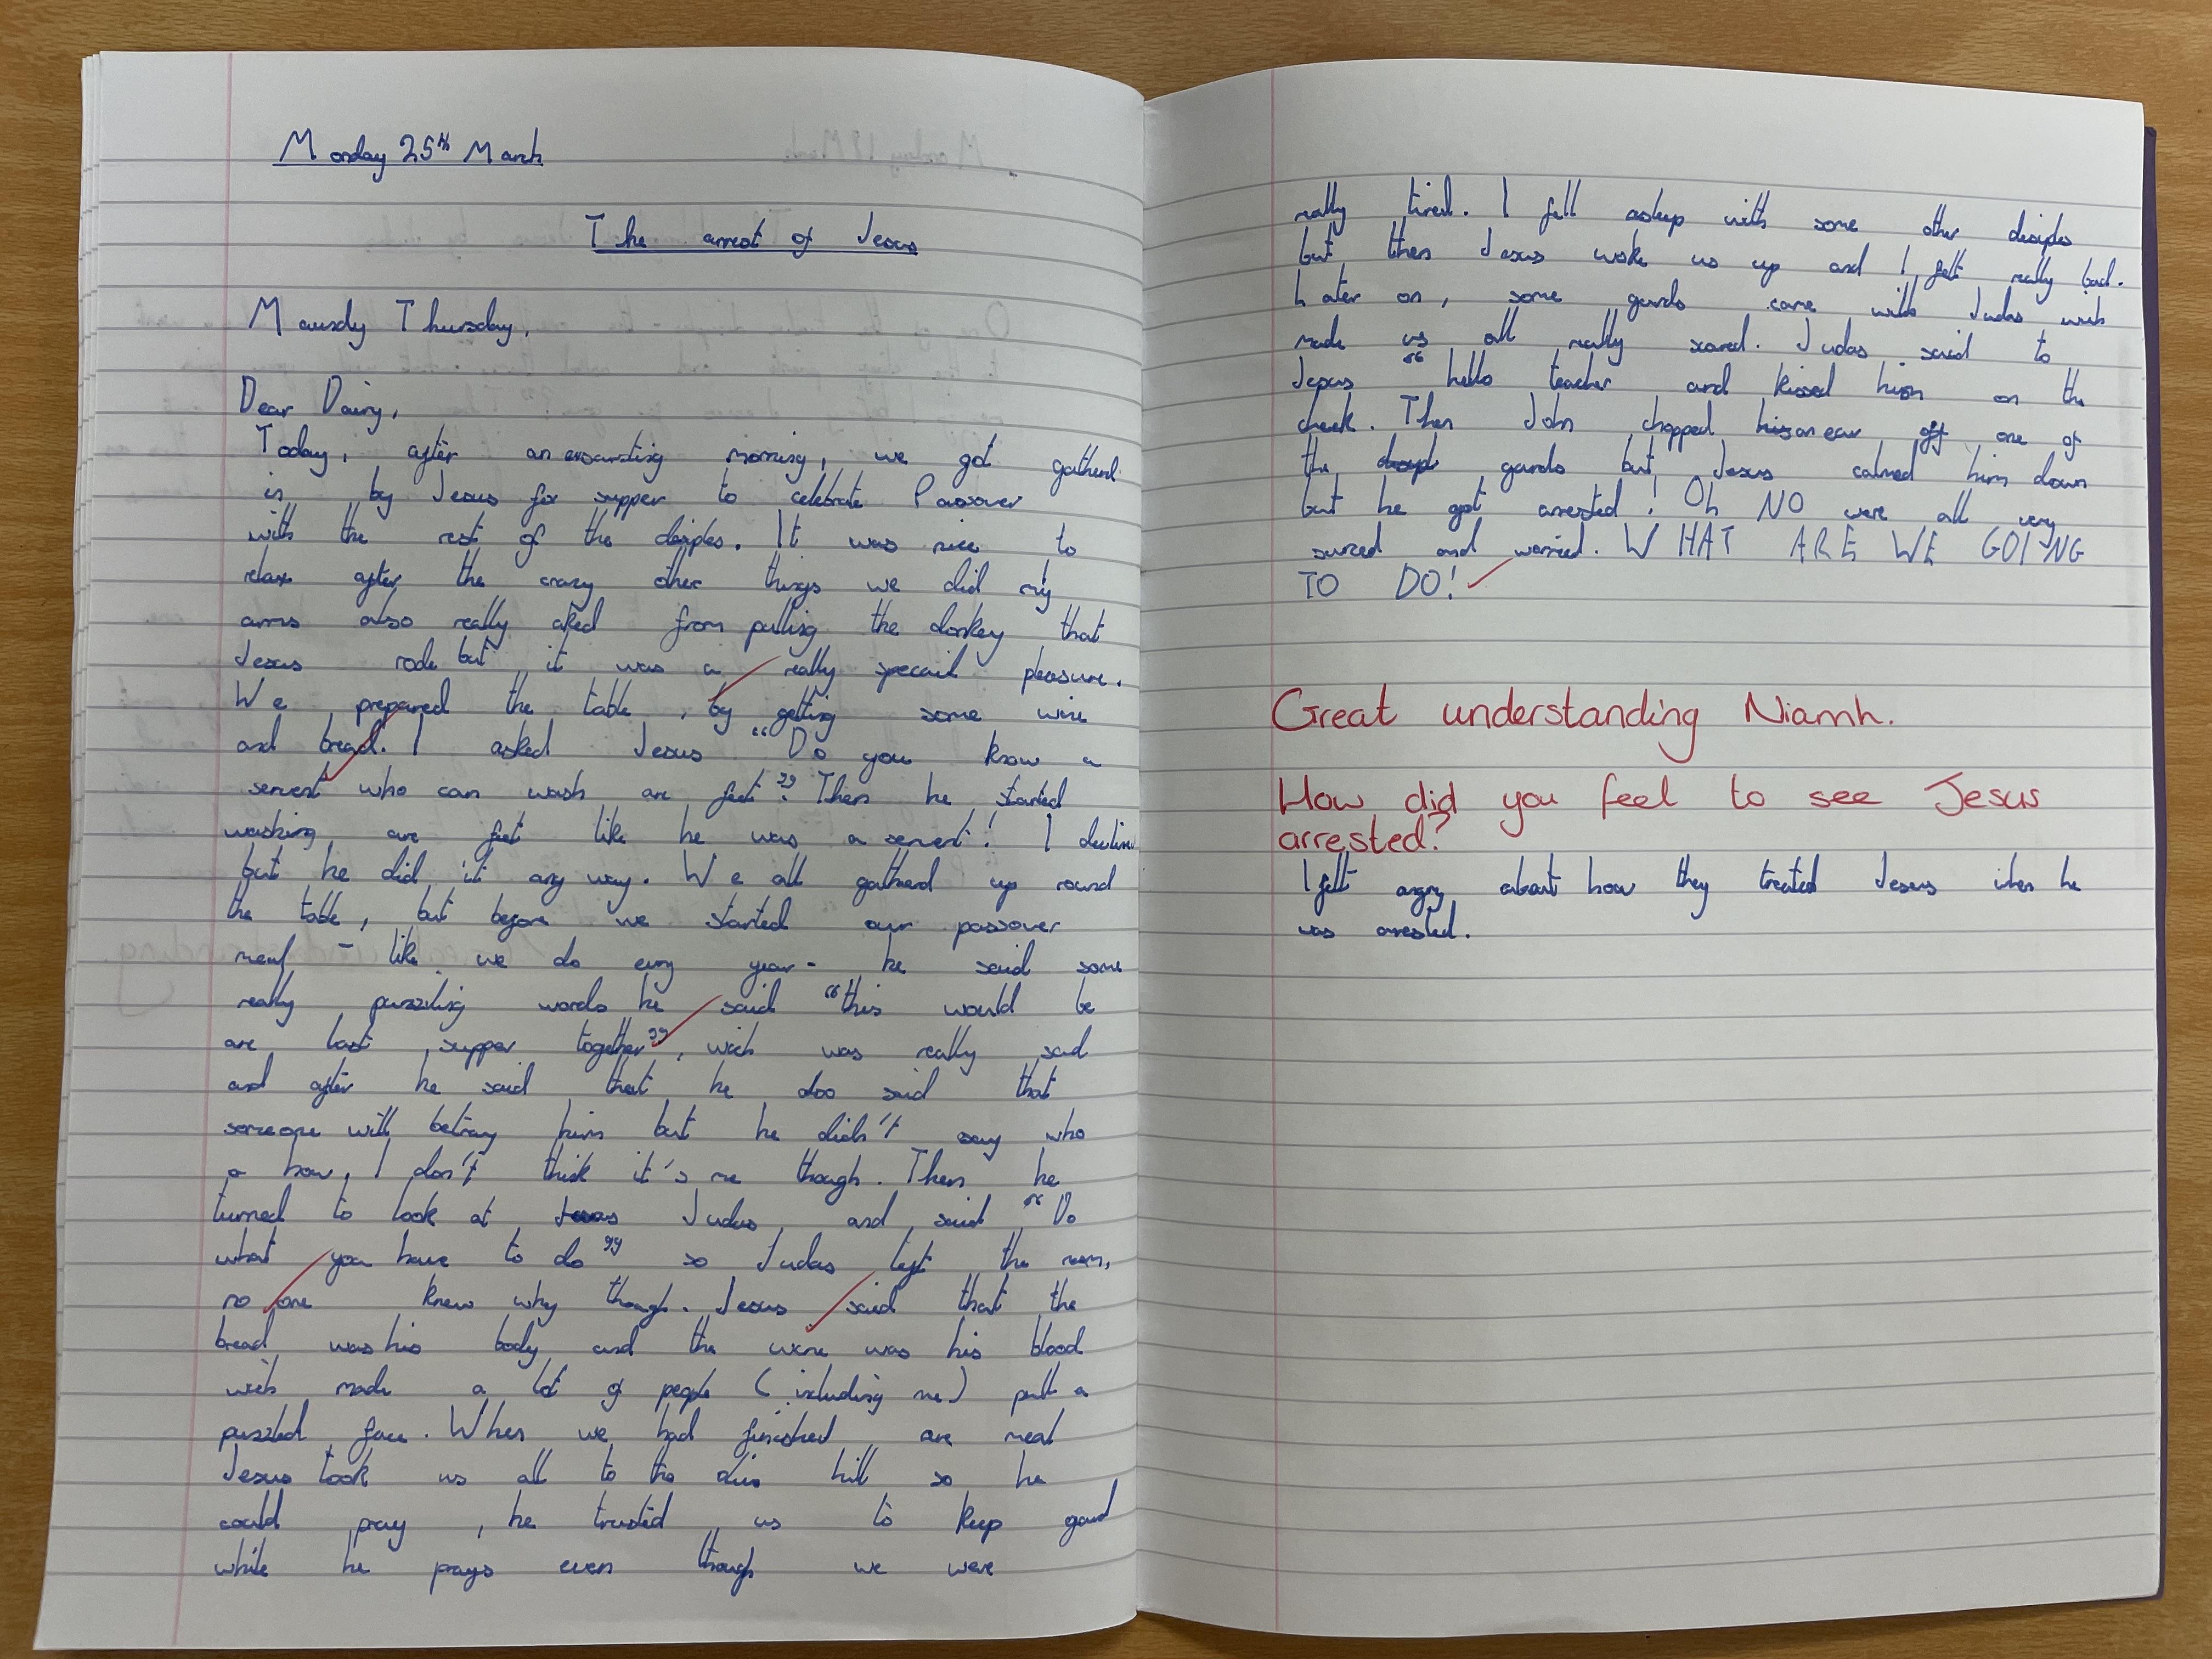 Monday 25th March
The arrest of Jesus
Maundy Thursday,
Dear Dairy,
Today, after an morning, we got gatherd
in by Jesus for supper to celebrate Passover
with the rest of the disciples. It was nice to
relax after the crazy other things we did my
arms also really aked from pulling the donkey that
Jesus rode but it was a really specail pleasure.
We prepared the table, by getting some wine
and bread. I asked Jesus "Do you know a
servent who can wash are feet?" Then he started
washing are feet like he was a servent! I
but he did it any way. We all gatherd up round
the table, but before we started our passover
meal - like we do evry year - he said some
really puzziling words he said "this would be
are last supper together", wich was really sad
and after he said that he also said that
someone will betray him but he didn't say who
or how, I don't think it's me though. Then he
turned to look at Jesus Judas and said "Do
what you have to do" so Judas left the room,
no one knew why though. Jesus said that the
bread was his body and the wine was his blood
wich made a lot of people (including me) pull a
puzzled face. When we had finished are meal
Jesus took us all to the hill so he
could pray, he trusted us to keep gaurd
while he prays even though we were
really tired. I fell asleep with some other disciples
but then Jesus woke us up and I felt really bad.
Later on, some gards came with Judas wich
made us all really scared. Judas said to
Jesus "hello teacher and kissed him on the
cheek. Then John chopped an ear off one of
the gards but Jesus calmed him down
but he got arrested! Oh NO were all very
and worried. WHAT ARE WE GOING
TO DO!
Great understanding Niamh.
How did you feel to see Jesus
arrested?
I felt angry about how they treated Jesus when he
was arrested.